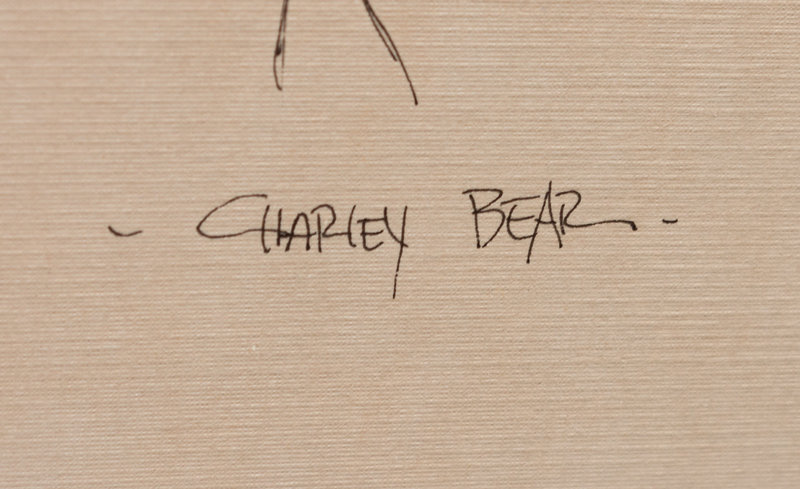 - CHARLEY BEAR -